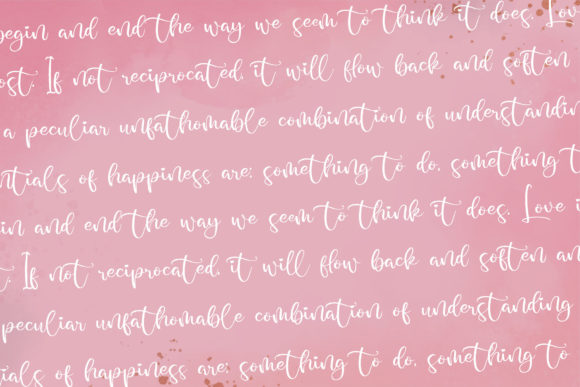 begin and end the way we seem to think it does. Love
ost. If not reciprocated, it will flow back and soften
a peculiar unfathomable combination of understandin
ntials of happiness are: something to do, something t
in and end the way we seem to think it does. Love i
t. If not reciprocated, it will flow back and soften an
peculiar unfathomable combination of understanding
tials of happiness are: something to do, something to